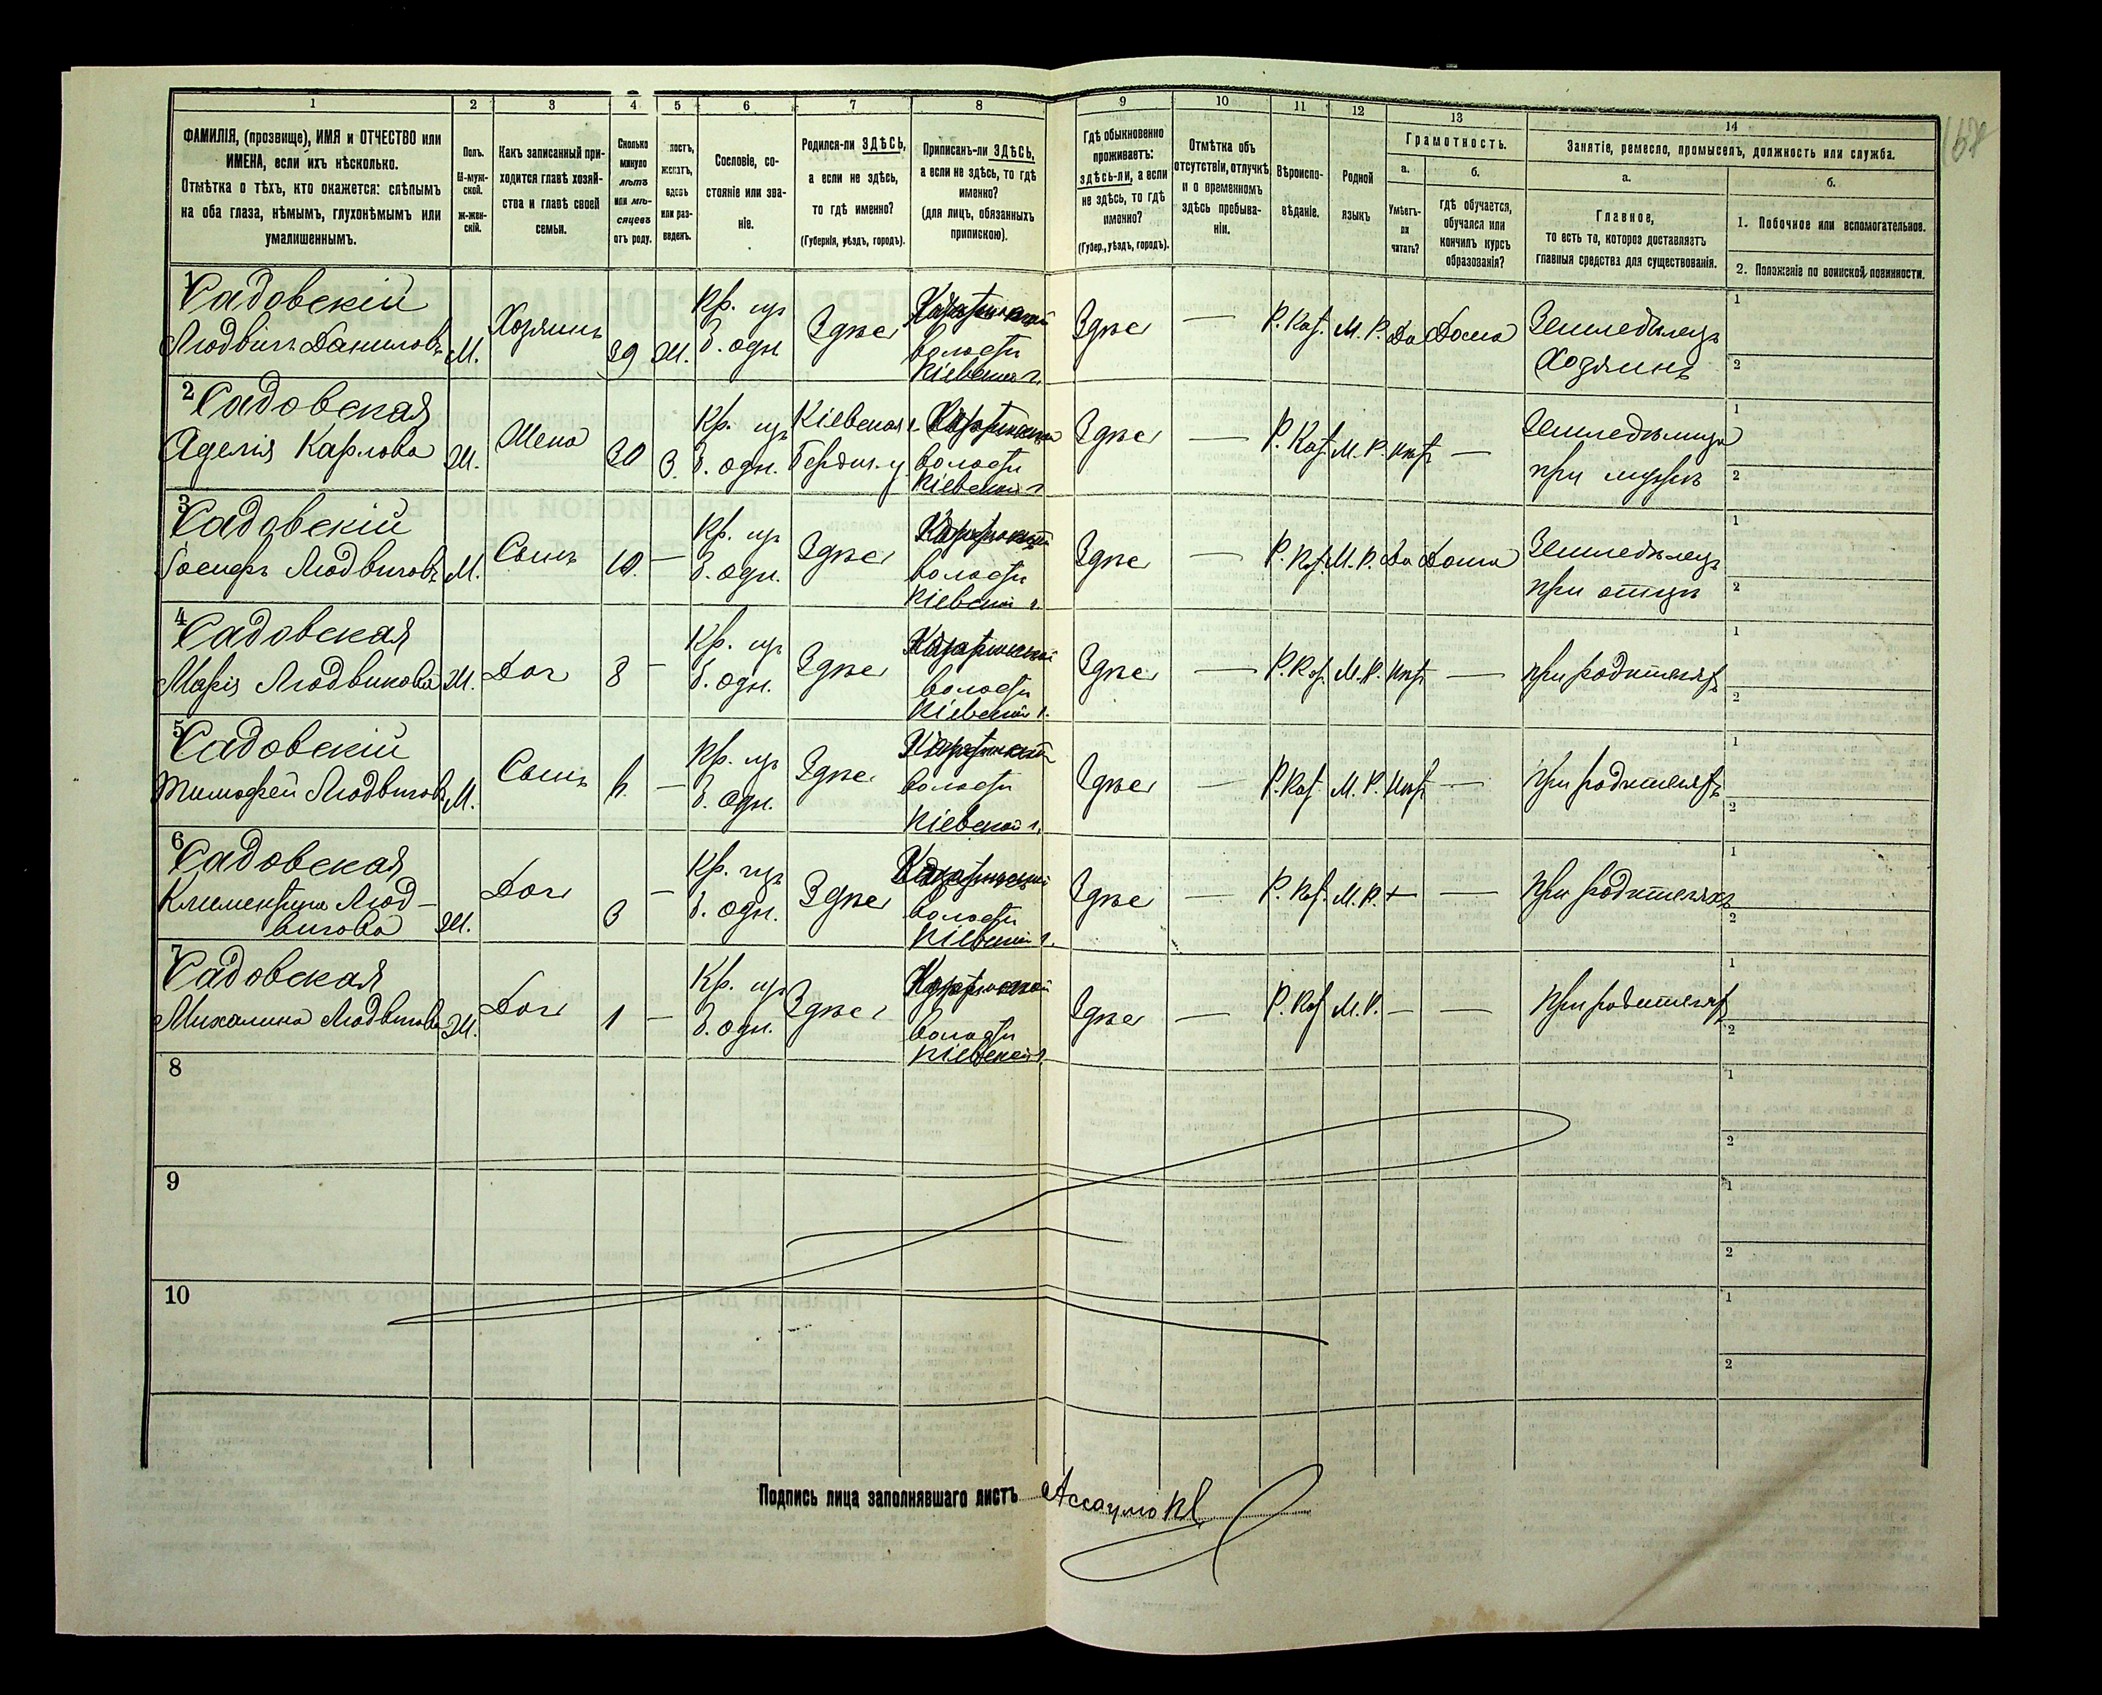 1
2
3
4
5
6
7
8
9
10
11
12
13
14
ФАМИЛІЯ, (прозвище), ИМЯ и ОТЧЕСТВО или
ИМЕНА, если ихъ нѣсколько.
Отмѣтка о тѣхъ, кто окажется: слѣпымъ
на оба глаза, нѣмымъ, глухонѣмымъ или
умалишеннымъ.
Полъ.
М-муж-
ской.
ж-жен-
скій.
Какъ записанный при-
ходится главѣ хозяй-
ства и главѣ своей
семьи.
Сколько
минуло
лѣтъ
или мѣ-
сяцевъ
отъ роду.
лостъ,
женатъ,
вдовъ
или раз-
веденъ.
Сословіе, со-
стояніе или зва-
ніе.
Родился-ли ЗДѢСЬ,
а если не здѣсь,
то гдѣ именно?
(Губернія, уѣздъ, городъ).
Приписанъ-ли ЗДѢСЬ,
а если не здѣсь, то гдѣ
именно?
(для лицъ, обязанныхъ
припискою).
Гдѣ обыкновенно
проживаетъ:
здѣсь-ли, а если
не здѣсь, то гдѣ
именно?
(Губер., уѣздъ, городъ).
Отмѣтка объ
отсутствіи, отлучкѣ
и о временномъ
здѣсь пребыва-
ніи.
Вѣроиспо-
вѣданіе.
Родной
языкъ
Грамотность.
а.
Умѣетъ-
ли
читать?
б.
гдѣ обучается,
обучался или
кончилъ курсъ
образованія?
Занятіе, ремесло, промыселъ, должность или служба.
а.
Главное,
то есть то, которое доставляетъ
главныя средства для существованія.
б.
1. Побочное или вспомогательное.
2. Положеніе по воинской повинности.
1
Садовскій
Людвигъ Даниловъ
М.
Хозяинъ
39
Ж.
Кр. изъ
б. одн.
Здѣсь
волости
Кіевской г.
Здѣсь
—
Р. Кат.
М. Р.
Да
Дома
Земледѣлецъ
Хозяинъ
1
2
2
Садовская
Аделія Карлова
Ж.
Жена
30
З.
Кр. изъ
б. одн.
Кіевская г.
Бердич. у.
волости
Кіевской г.
Здѣсь
—
Р. Кат.
М. Р.
нѣтъ
—
при мужѣ
1
2
3
Садовскій
Іосифъ Людвиговъ
М.
Сынъ
10.
—
Кр. изъ
б. одн.
Здѣсь
волости
Кіевской г.
Здѣсь
—
Р. Кат.
М. Р.
Да
Дома
Земледѣлецъ
при отцѣ
1
2
4
Садовская
Марія Людвикова
Ж.
Доч
8
—
Кр. изъ
б. одн.
Здѣсь
волости
Кіевской г.
Здѣсь
—
Р. Кат.
М. Р.
нѣтъ
—
при родителяхъ
1
2
5
Садовскій
Тимофей Людвигов
М.
Сынъ
—
Кр. изъ
б. одн.
Здѣсь
волости
Кіевской г.
Здѣсь
—
Р. Кат.
М. Р.
нѣтъ
—
при родителяхъ
1
2
6
Садовская
Климентина Люд-
вигова
Ж.
Доч
3
—
Кр. изъ
б. одн.
Здѣсь
волости
Кіевской г.
Здѣсь
—
Р. Кат.
М. Р.
—
—
при родителяхъ
1
2
7
Садовская
Михалина Людвигова
Ж.
Доч
1
—
Кр. изъ
б. одн.
Здѣсь
волости
Кіевской г.
Здѣсь
—
Р. Кат.
М. Р.
—
—
при родителяхъ
1
2
8
1
2
9
1
2
10
1
2
Подпись лица заполнявшаго листъ